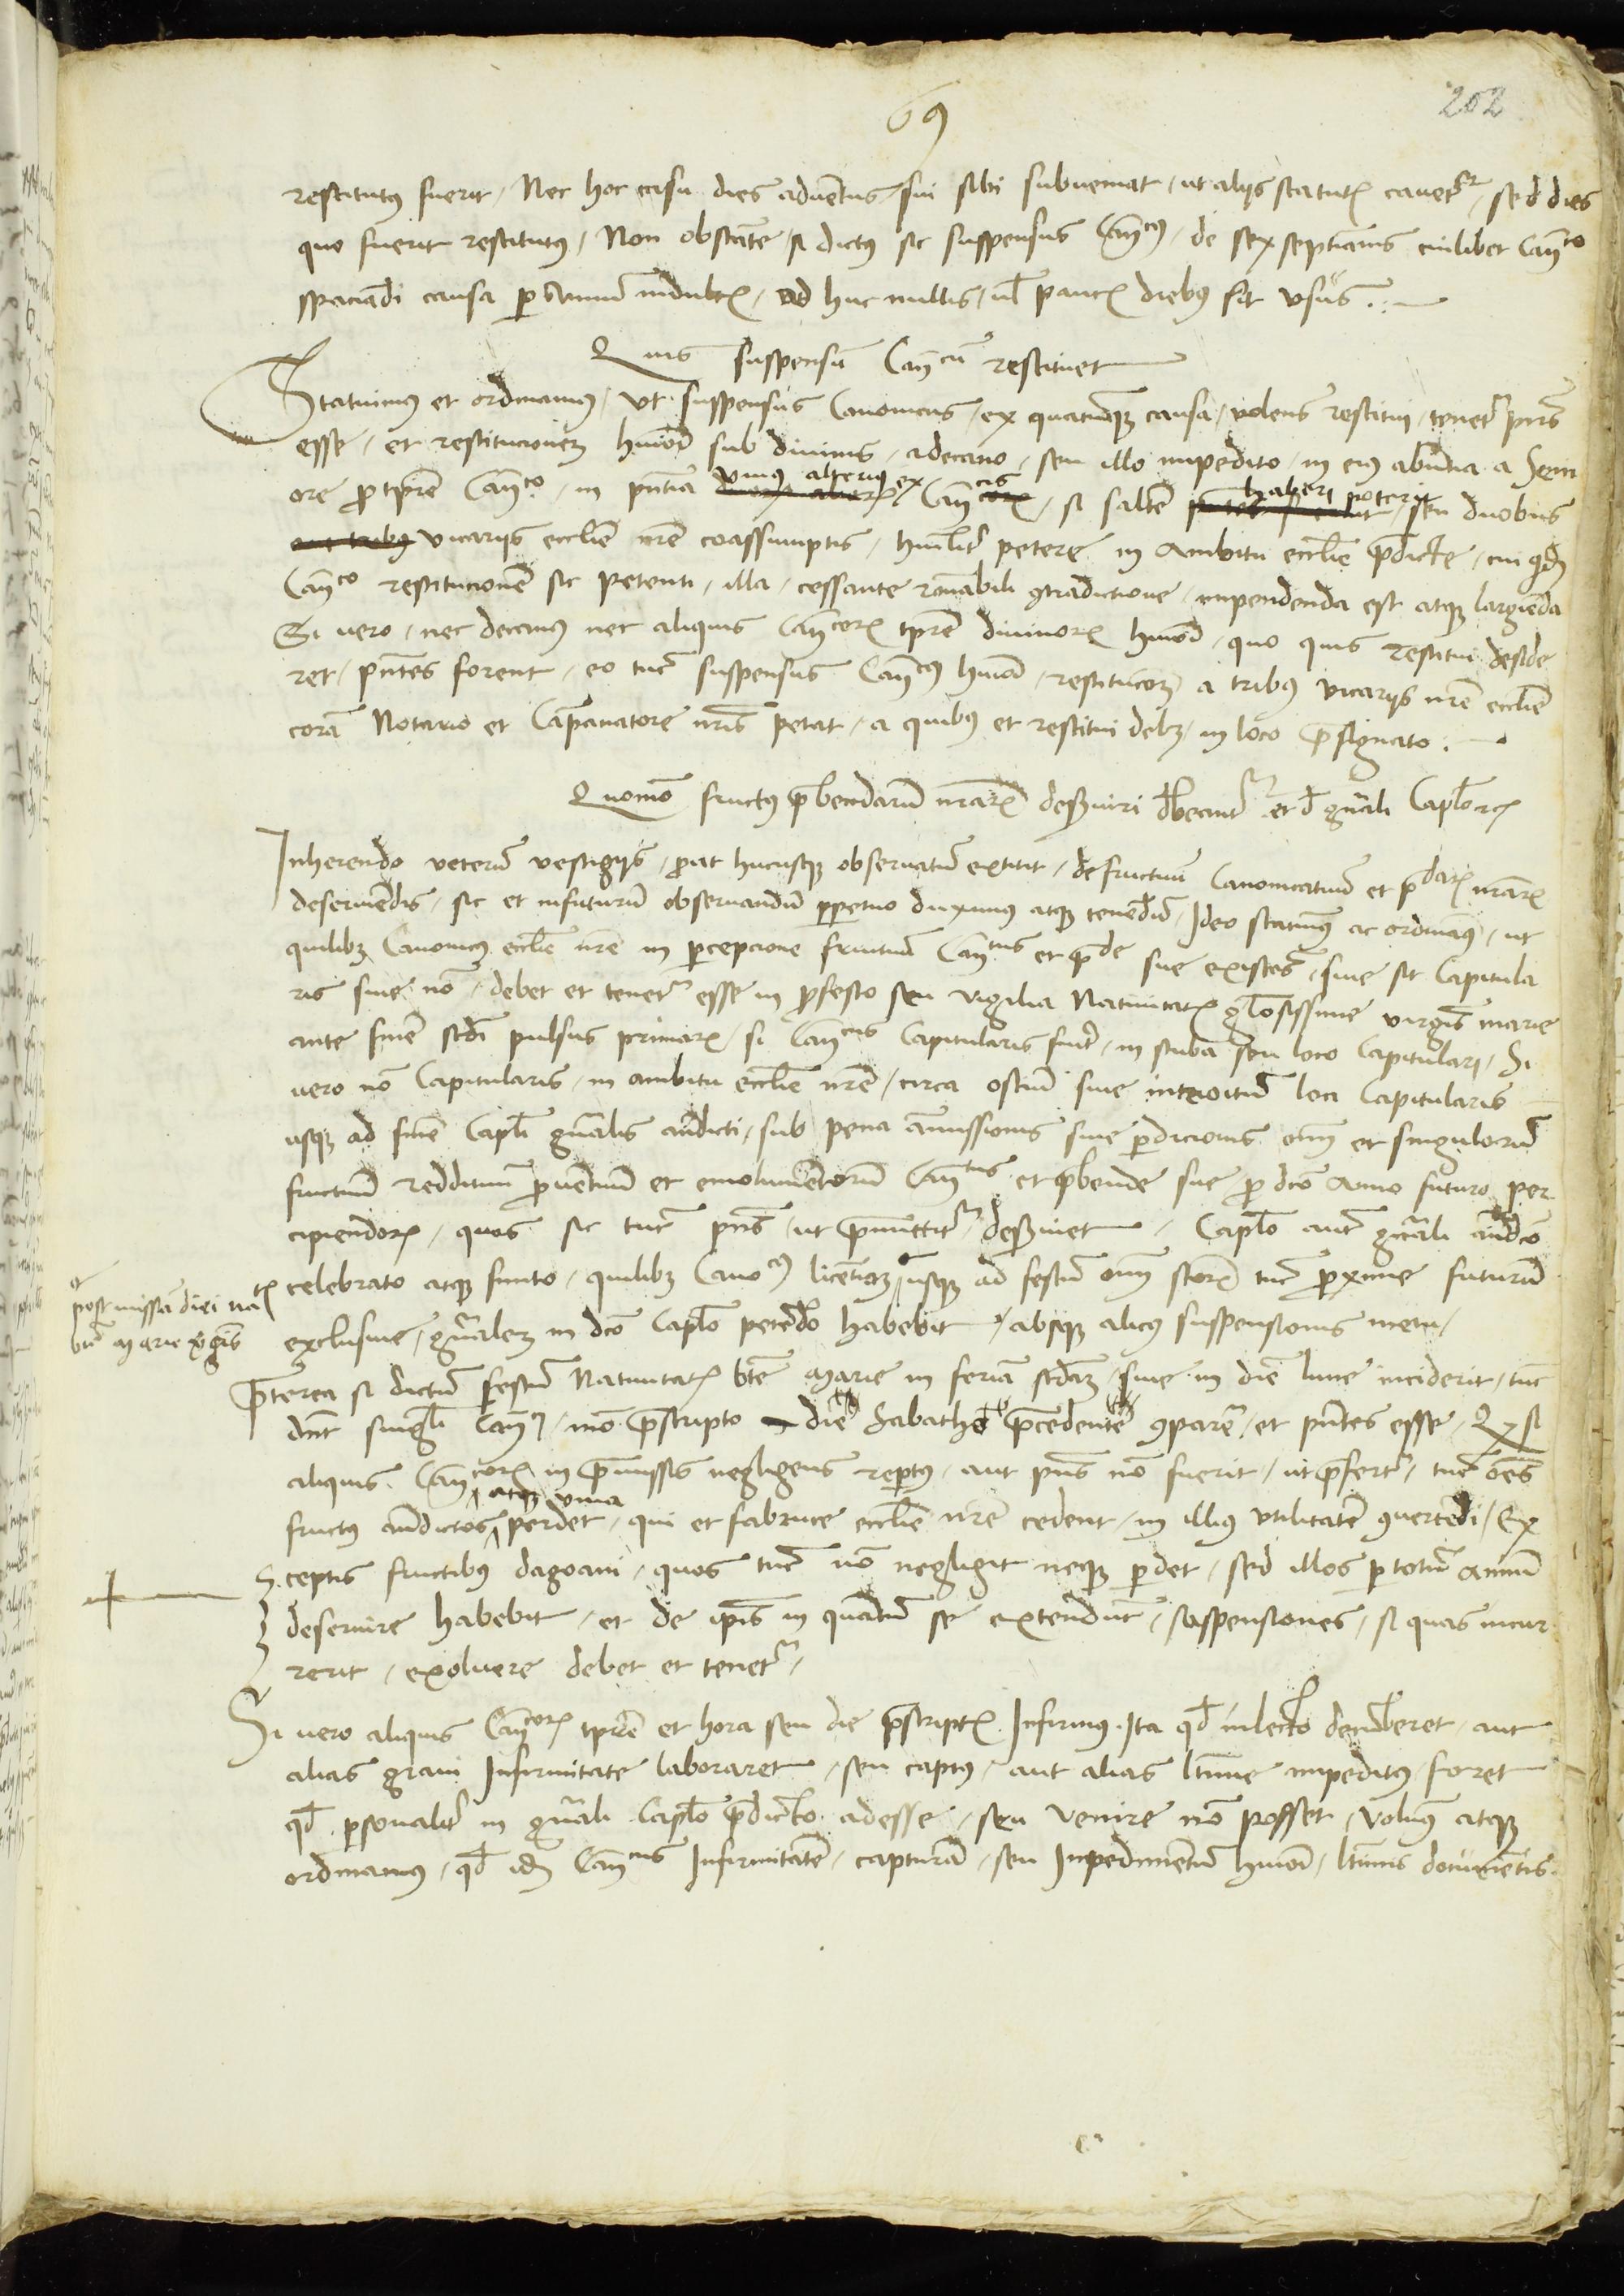 69
202
restitutus fuerit, Nec hoc casu dies adventus sui sibi subveniat, ut alijs statutis cavetur, sed dies
quo fuerit restitutus, Non obstante si dictus sic suspensus Canonicus, de sex septimanis cuilibet Canonico
spaciandi causa per Annum indultis, ad huc nullis, vel paucis diebus sit usus.
Quis suspensum Canonicum restituet
Statuimus et ordinamus, Ut suspensus Canonicus, ex quacunque causa, volens restitui, tenetur presens
esse, et restitucionem huiusmodi sub divinis, a decano, seu illo impedito, in eius absentia a Seni
ore pro tempore Canonico, in presentia unius alterius ex Canonicis, si saltem haberi poterit, seu duobus
aut tribus vicarijs ecclesie nostre coassumptis, humiliter petere in Ambitu ecclesie predicte, cui quidem
Canonico restitucionem sic petenti, illa, cessante rationabili contradictione, impendenda est atque largienda
Si vero, nec decanus nec aliquis Canonicorum tempore divinorum huiusmodi, quo quis restitui deside
ret, presentes forent, eo tunc suspensus Canonicus huiusmodi, restitucionem a tribus vicarijs nostre ecclesie
coram Notario et Campanatore nostris petat, a quibus et restitui debet, in loco presignato.
Quomodo fructus prebendarum nostrarum deserviri debeant et de generali Capitulo
Inherendo veterum vestigijs, prout hucusque observatum extitit, de fructuum Canonicatuum et prebendarum nostrarum
deserviendis, sic et in futurum observandum perpetuo duximus atque tenendum, Ideo statuimus ac ordinamus, ut
quilibet Canonicus ecclesie nostre in percepcione fructuum Canonicatus et prebende sue existens, sive sit Capitula
ris sive non, debet et tenetur esse in profesto seu vigilia Nativitatis gloriosissime virginis marie
ante finem secundi pulsus primarum, si Canonicus Capitularis fuerit, in stuba seu loco Capitulari, Si
vero non Capitularis, in ambitu ecclesie nostre, circa ostium sive introitum loci Capitularis
usque ad finem Capituli generalis antedicti, sub pena amissionis sive perdicionis omnium et singulorum
fructuum reddituum proventuum et emolumentorum Canonicatus et prebende sue, pro dicto Anno futuro per
cipiendorum, quos sic tunc presens, ut premittitur, deserviet, Capitulo autem generali antedicto
celebrato atque finito, quilibet Canonicus licentiam, usque ad festum omnium sanctorum tunc proxime futurum
post missam diei nativitatis
beate Marie virginis
exclusive, generalem in dicto Capitulo petendo habebit, absque alicuius suspensionis metu,
Preterea si dictum festum Nativitatis beate Marie in feriam secundam, sive in diem lune inciderit, tunc
debent singuli Canonici, modo prescripto die Sabatho precedente comparere, et presentes esse, Quod si
aliquis Canonicorum in premissis negligens repertus, aut presens non fuerit, ut prefertur, tunc omnes
fructus antedictos atque vina perdet, qui et fabrice ecclesie nostre cedent, in illius utilitatem convertendi, Ex
ceptis fructibus dagoani, quos tunc non negligit neque perdet, sed illos per totum Annum
deservire habebit, et de ipsis in quantum se extendunt, suspensiones, si quas incur
rerit, exolvere debet et tenetur,
Si vero aliquis Canonicorum tempore et hora seu die prescriptis Infirmus, Ita quod in lecto decumberet, aut
alias gravi Infirmitate laboraret, seu captus, aut alias legitime impeditus foret
quod personaliter in generali Capitulo predicto adesse, seu venire non posset, Volumus atque
ordinamus, quod idem Canonicus Infirmitatem, capturam, seu Impedimentum huiusmodi, legitimis documentis